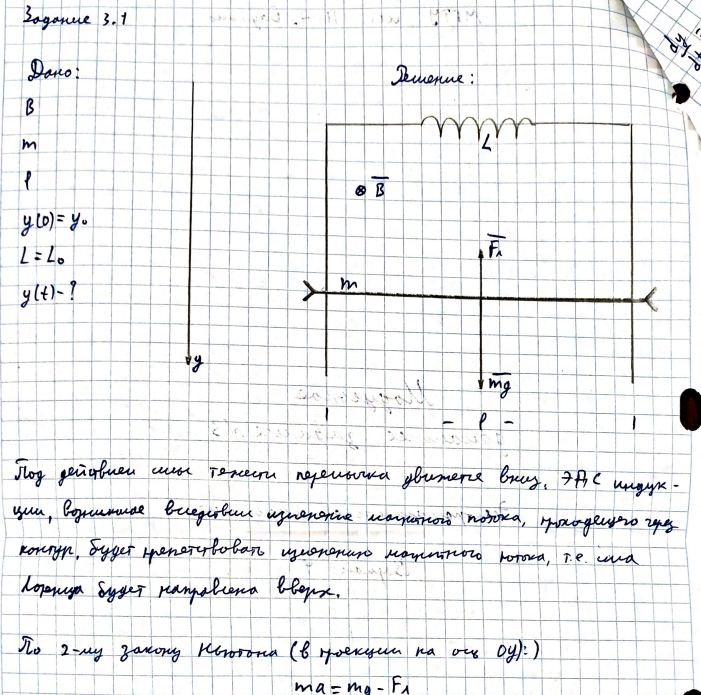 Задание 3.1
Дано:
Решение:
B
m
l
y(0)=y₀
L=L₀
y(t)-?
y
L
B
m
Fл
mg
l
Под действием силы тяжести перемычка движется вниз. ЭДС индук-
ции, возникшая вследствии изменения магнитного потока, проходящего через
контур, будет препятствовать изменению магнитного потока, т.е. сила
Лоренца будет направлена вверх.
По 2-му закону Ньютона (в проекции на ось OY):)
ma = mg - Fл